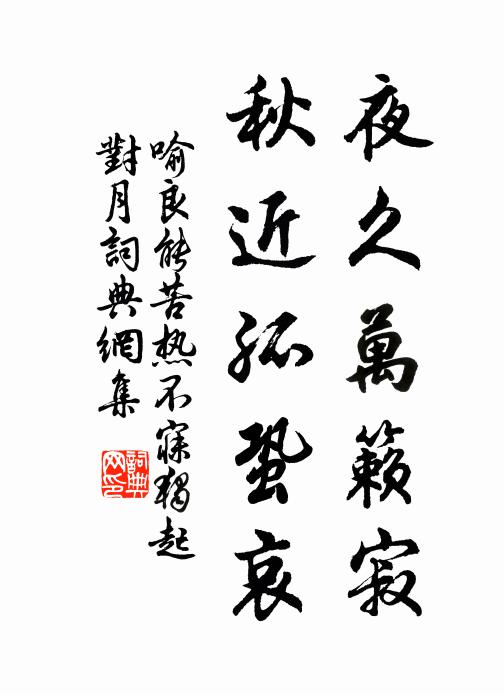 夜久萬籟寂
秋近孤蛩哀
喻良能苦热不寐獨起
對月詞典網集
詞典
网印